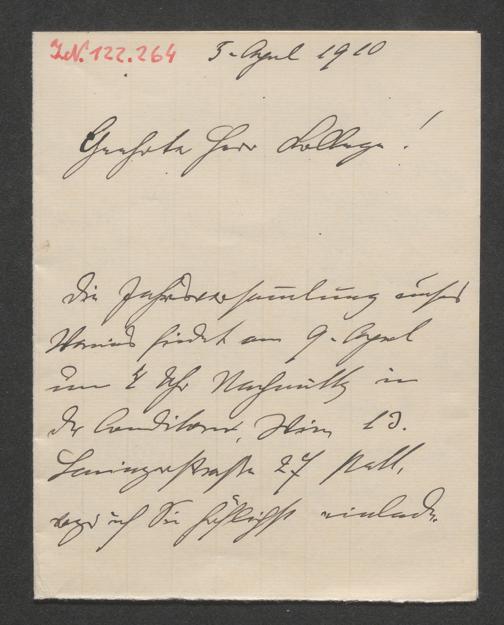 I.N. 122.264 5. April 1910
Geehrter Herr Kollege!
Die Jahresversammlung unseres
Vereines findet am 9. April
um Uhr Nachmittg in
der Conditorei, Wien 13.
Lainzerstraße 27 statt,
wozu ich Sie höflichst einlade.